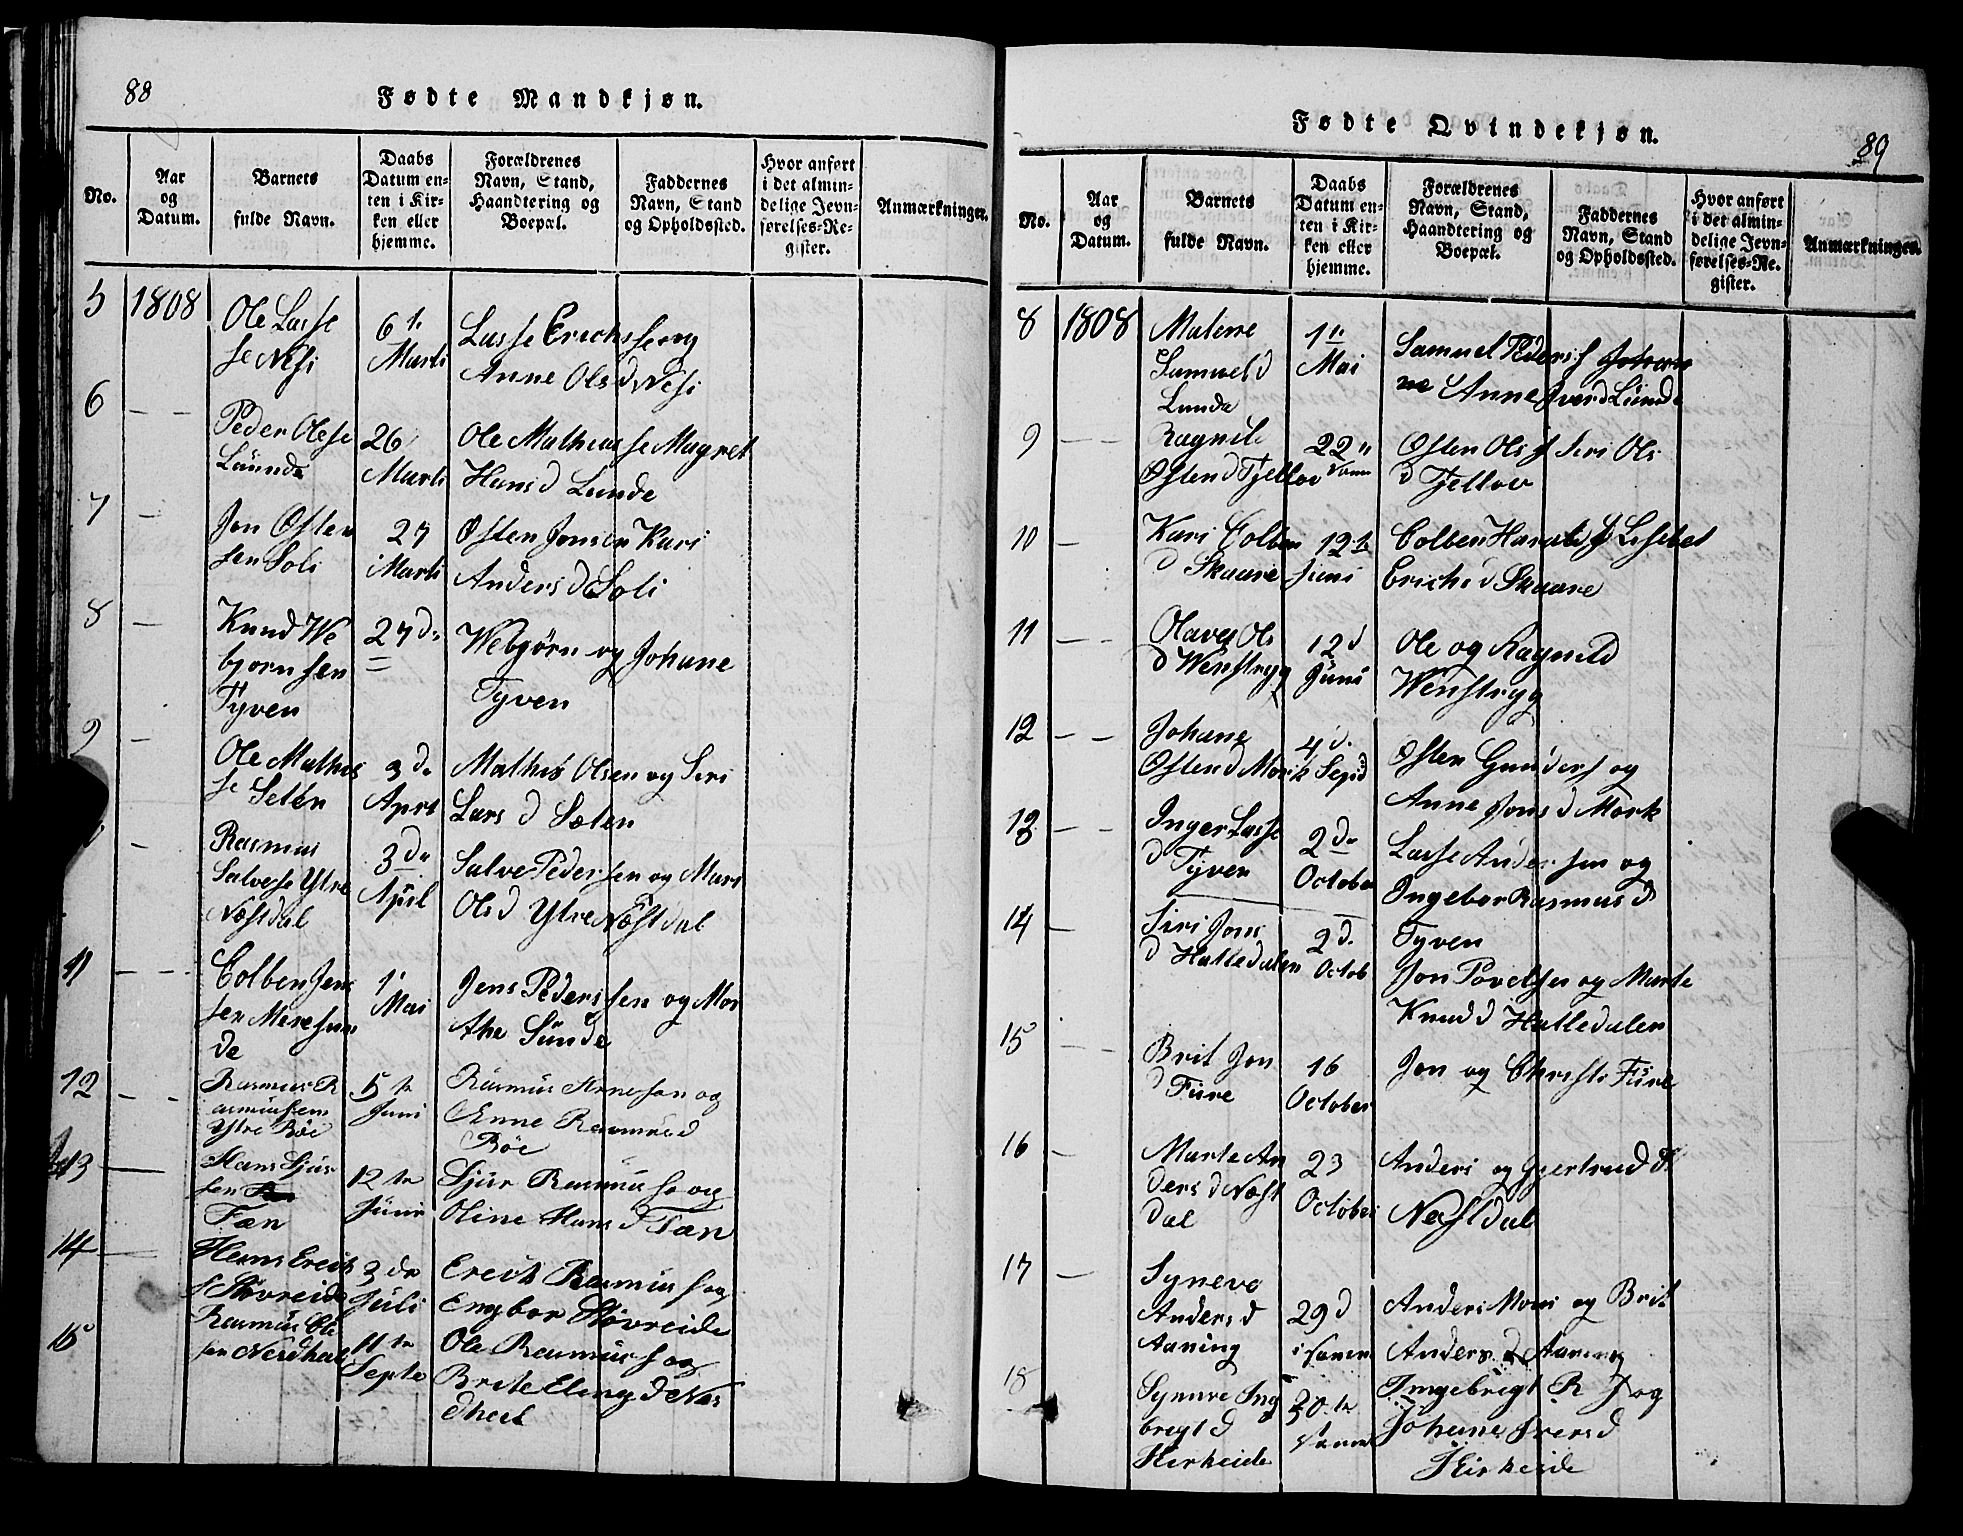 88
Fødte Mandkjøn.
No.
Aar
og
Datum.
Barnets
fulde Navn.
Daabs
Datum en-
ten i Kir-
ken eller
hjemme.
Forældrenes
Navn, Stand,
Haandtering og
Boepæl.
Faddernes
Navn, Stand
og Opholdssted.
Hvor anført
i det almin-
delige Jevn-
førelses-Re-
gister.
Anmærkninger.
5 1808 Ole Lasse
se Nesi
6te
Marti
Lasse Erichsse og
Anne Olsd Nesi
6 — —
Peder Olese
Lunde
26
Marti
Ole Mathias se Magret
Hans d Lunde
7 —
Jon Østen
sen Soli
27
Marti
Østen Jonsen Kari
Anders d Soli
8 —
Knud We
bjornsen
Tyven
27 d
Webjørn og Johane
Tyven
9 —
Ole Mathis
se Seten
3 d
Apri
Mathis Olsen og Siri
Lars d Sæten
—
Rasmus
Salvese Ytre
Næstdal
3 d
April
Salve Pedersen og Mari
Ols d Ytre Næstdal
11 — —
Colben Jens
sen Meresun
de
1
Mai
Jens Pederssen og Mar
the Sunde
12 — —
Rasmus R
asmussen
Ytre Böe
5 te
Juni
Rasmus Arnesen og
Anne Rasmus d
Böe
13 —
Hans Sjur
sen
Tæn
12 te
Juni
Sjur Rasmus s og
Oline Hans d Tæn
14 —
Hans Erich
s Støvreide
3 de
Juli
Erich Rasmus s og
Engbor Støvreide
15
Rasmus Ole
sen Nerdheel
11 te
Septe
Ole Rasmus s og
Brite Eling d Ner
dheel
89
Fødte Qvindekjøn.
No.
Aar
og
Datum.
Barnets
fulde Navn.
Daabs
Datum en-
ten i Kir-
ken eller
hjemme.
Forældrenes
Navn, Stand,
Haandtering og
Boepæl.
Faddernes
Navn, Stand
og Opholdssted.
Hvor anført
i det almin-
delige Jevn-
førelses-Re-
gister.
Anmærkninger.
8 1808 Malene
Samuel d
Lunde
1te
Mai
Samuel Peders s
Anne Iver d Lunde
9 — —
Ragnile
Østen d Tjellov
22
Østen Ols s Siri Ols
d Tjellov
10 —
Kari Colben
d Skaare
12te
Juni
Colben Harals s Lisebet
Erichs d Skaare
11 — —
Olave Ols
d Wenstryg
12 d
Juni
Ole og Ragnild
Wenstryg
12 — —
Johane
Østen d Mork
4 d.
Sept
Østen Gunders og
Anne Jons d Mork
13 — —
Inger Lasse
d Tyven
2 d
October
Lasse Andersen og
Ingebor Rasmus d
Tyven
14 —
Siri Jons
d Hatledalen
2 d.
Octob
Jon Povelsen og Marte
Knud d Hatledalen
15 — —
Brit Jon
d Fure
16
October
Jon og Christi Fure
16 —
Marte An
ders d Næst
dal
23
October
Anders og Gjertrud
Nestdal
17 —
Syneve
Anders d
Aaning
29 d
Anders Mons og Brit
Anders d Aaning
18 —
Synnve Ing
bregt d
Hierheide
30 te
Ingebregt R s og
Johane Ivers d
Hierheide